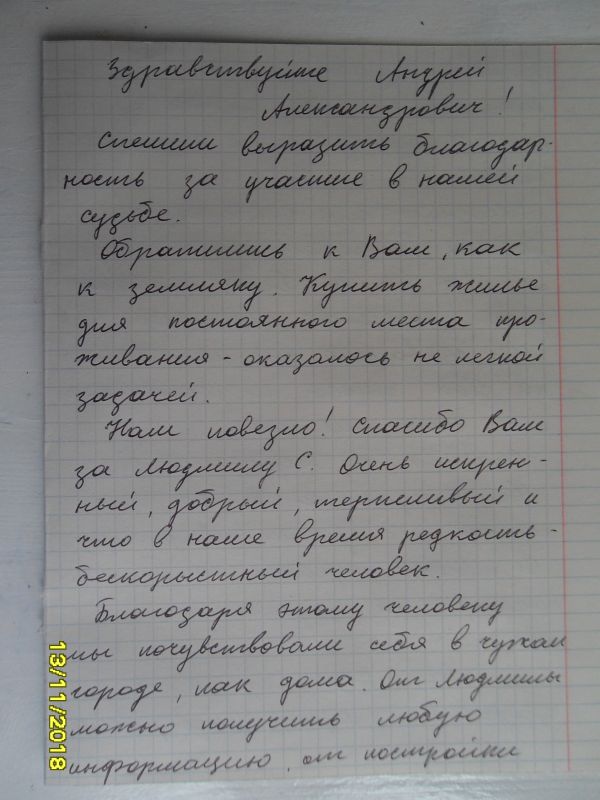 Здравствуйте Андрей
Александрович!
Спешим выразить благодар-
ность за участие в нашей
судьбе.
Обратились к Вам, как
к земляку. Купить жилье
для постоянного места про-
живания - оказалось не легкой
задачей.
Нам повезло! Спасибо Вам
за Людмилу С. Очень искрен-
ный, добрый, терпеливый и
что в наше время редкость -
бескорыстный человек.
Благодаря этому человеку
мы почувствовали себя в чужом
городе, как дома. От Людмилы
можно получить любую
информацию, от постройки
13/11/2018